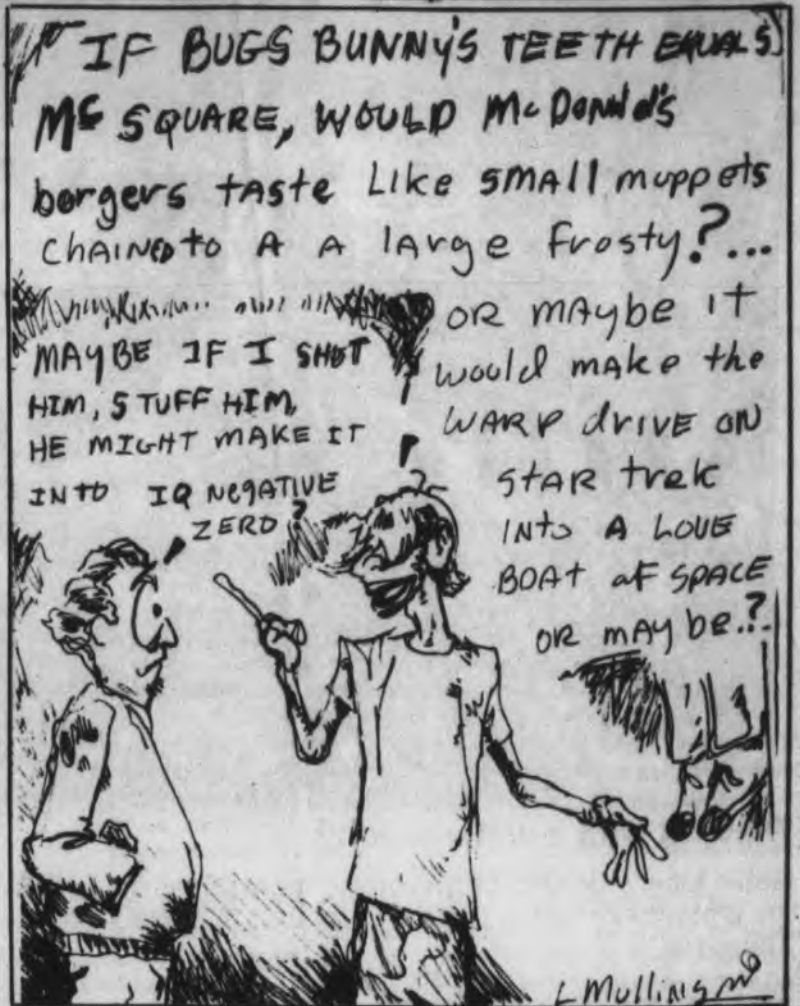 IF BUGS BUNNY'S TEETH EQUALS
MC SQUARE, WOULD McDonald's
borgers taste Like small muppets
chained to A A large frosty?...
OR maybe it
would make the
WARP drive ON
Star trek
INto A LOVE
BOAT of SPACE
OR maybe..?
MAYBE IF I SHOT
HIM, STUFF HIM,
HE MIGHT MAKE IT
INTO IQ NEGATIVE
ZERO?
L Mullins